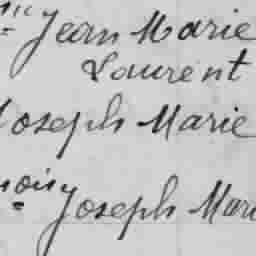 Jean Marie
Laurent
Joseph Marie
Joseph Mari